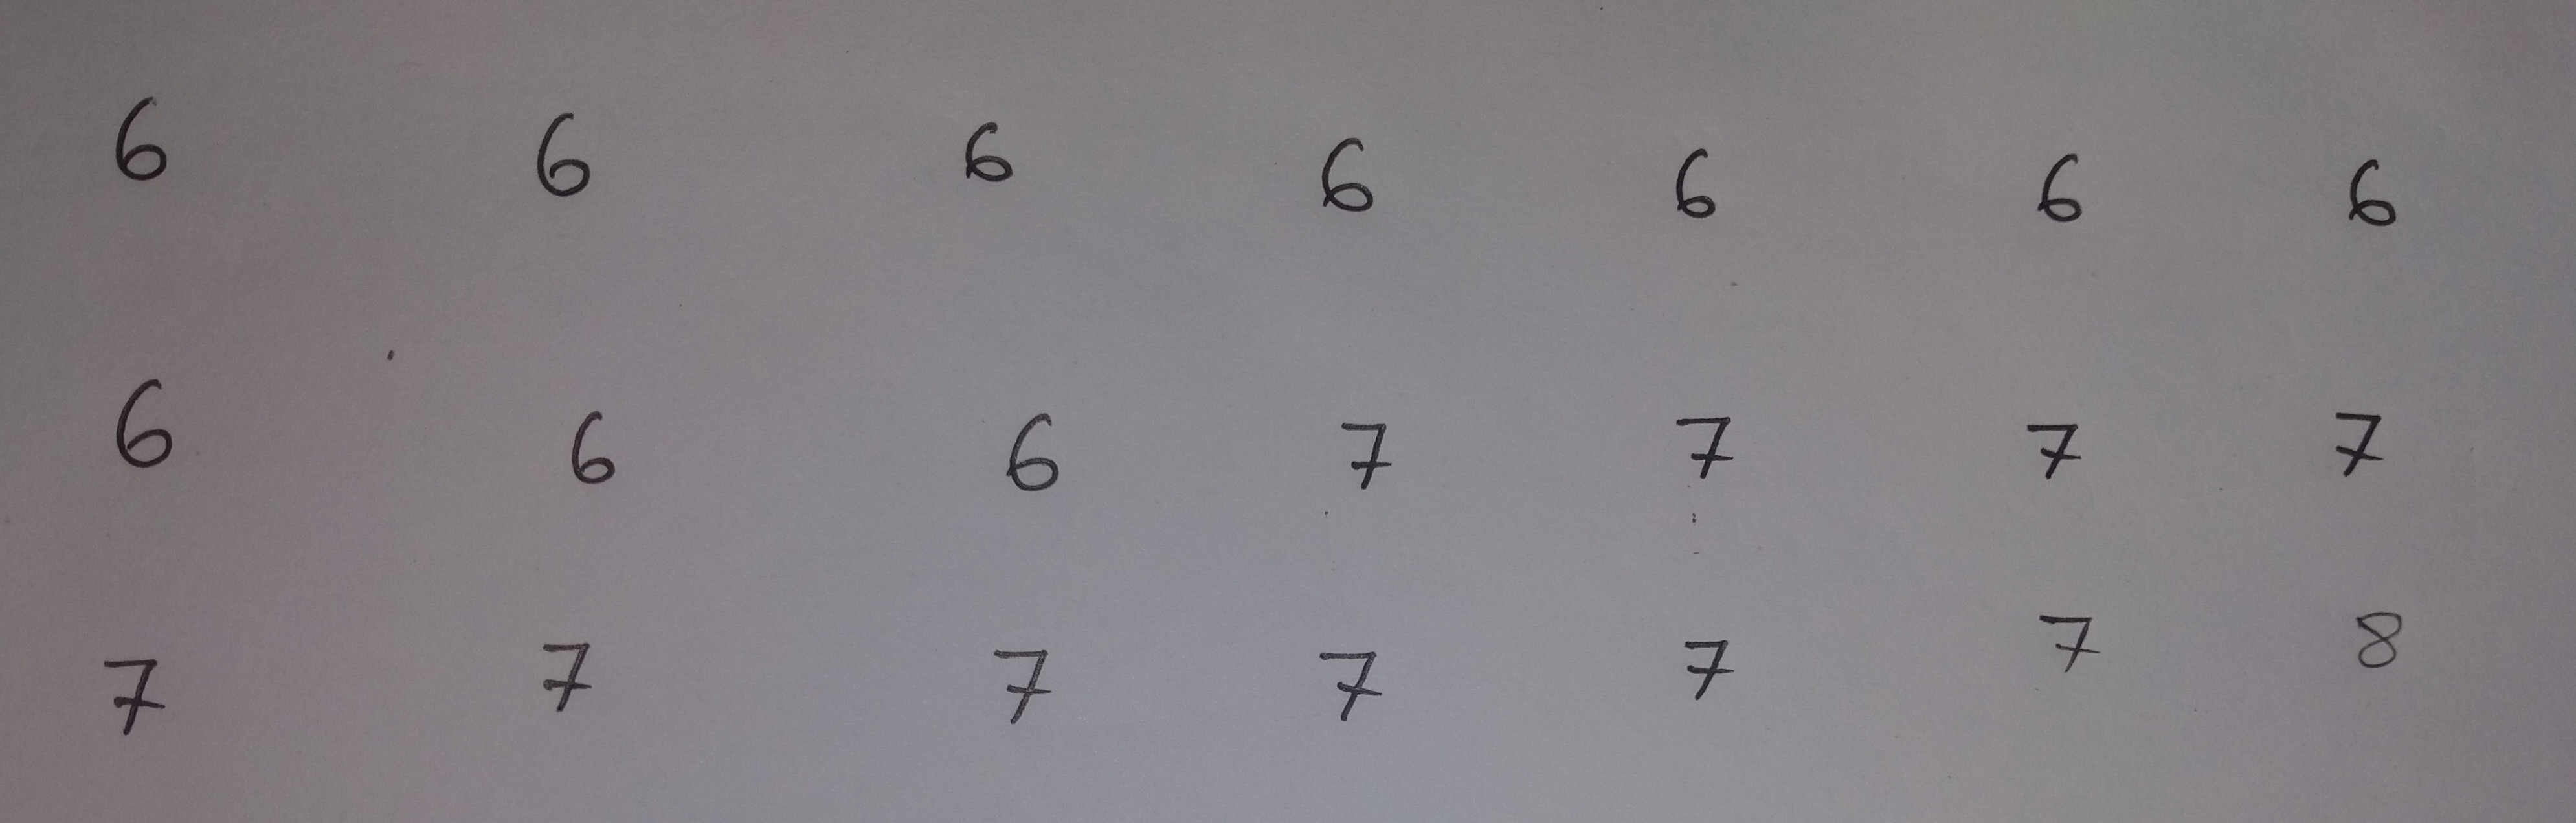 6 6 6 6 6 6 6
6 6 6 7 7 7 7
7 7 7 7 7 7 8